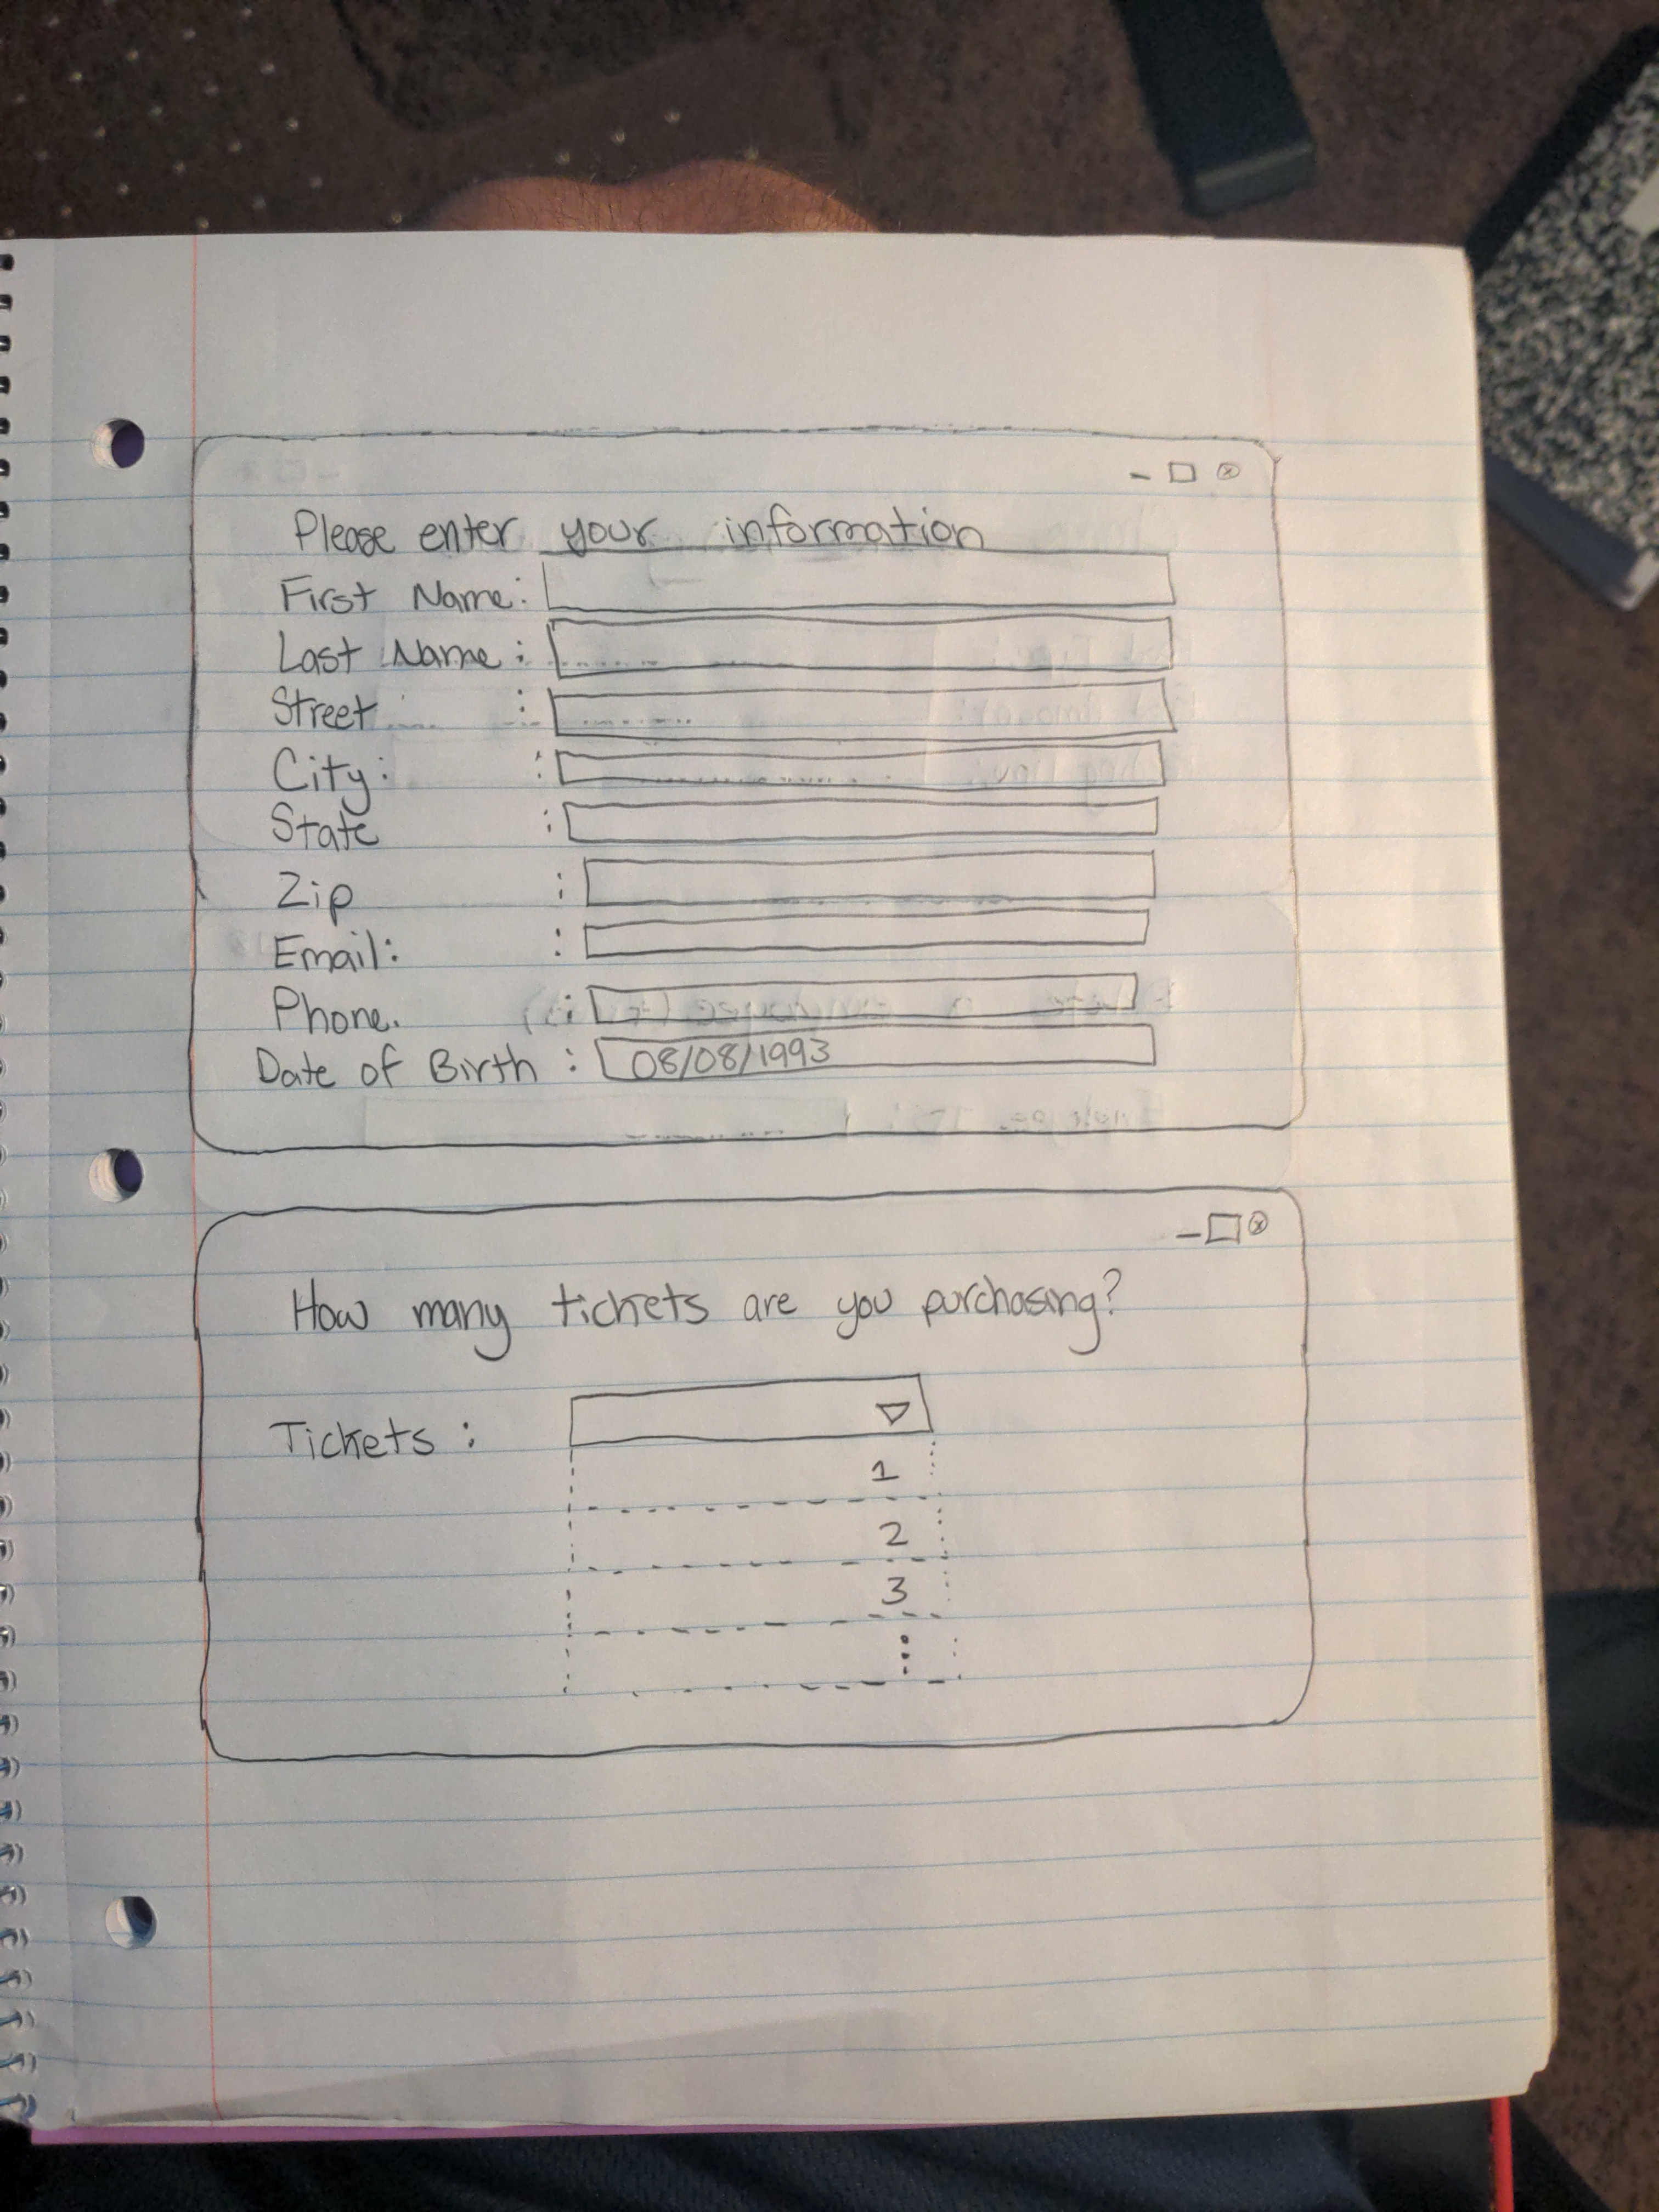 Please enter your information
First Name:
Last Name :
Street :
City: :
State :
Zip :
Email: :
Phone. :
Date of Birth : 08/08/1993
How many tickets are you purchasing?
Tickets :
1
2
3